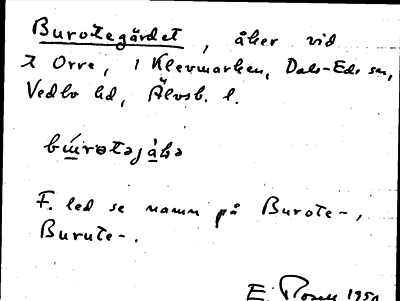 Burotegärdet, åker vid
t Orre, i Klevmarken, Dals-Eds sn,
Vedbo hd, Älvsb. l.
F. led se namn på Burote-,
Burute-.
E. 1950